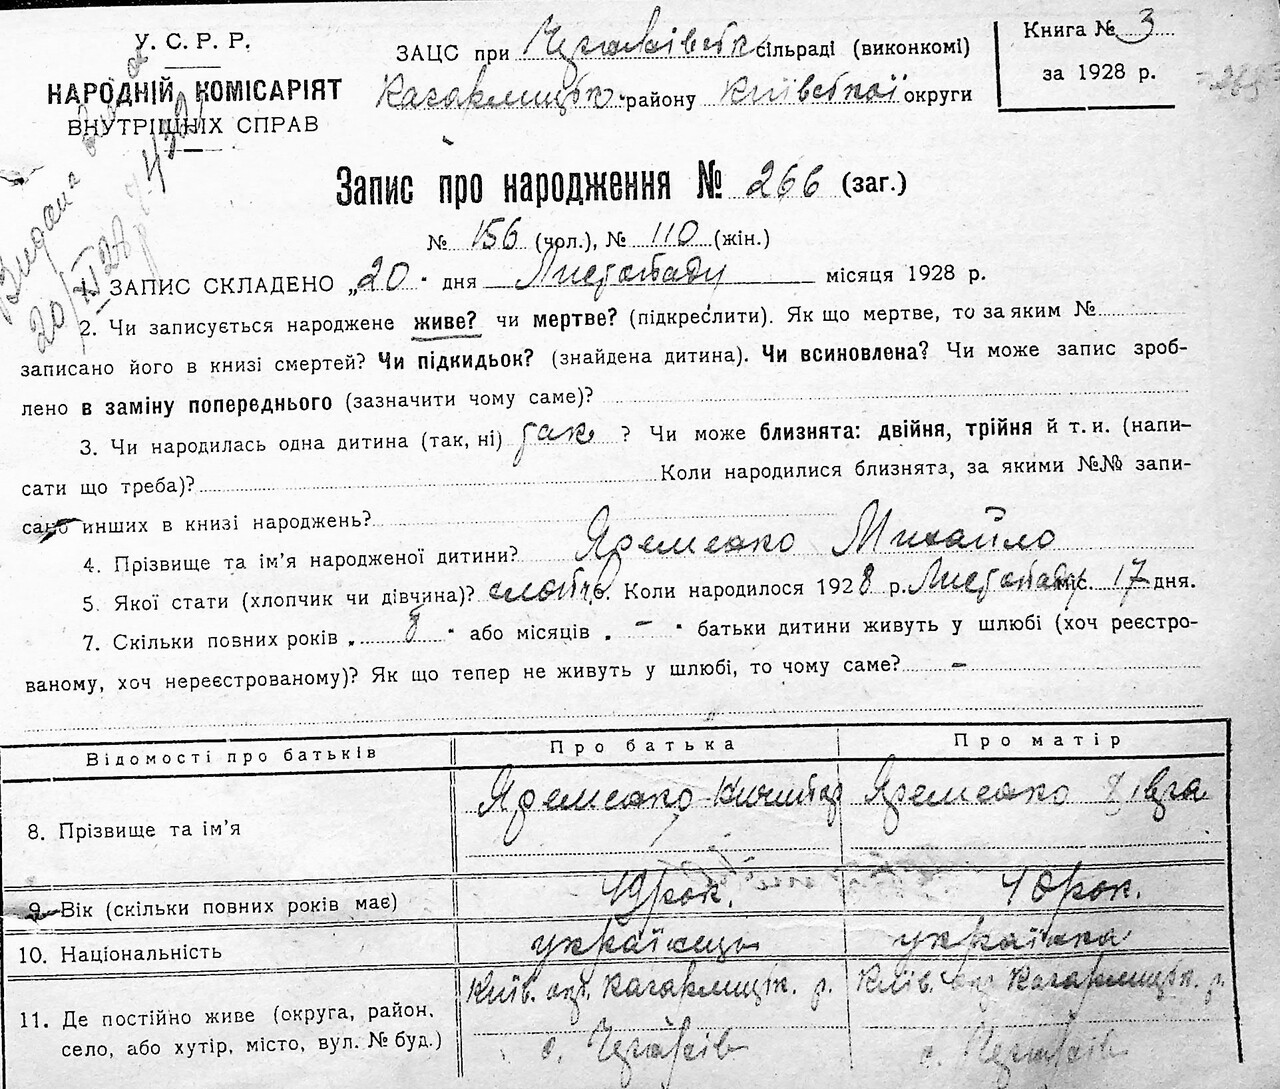 У. С. Р. Р.
НАРОДНІЙ КОМІСАРІЯТ
ВНУТРІШНІХ СПРАВ
ЗАЦС при сільраді (виконкомі)
Кагарлицьк. району Київської округи
Книга № 3
за 1928 р.
Видана
20/XI 28 р.
Запис про народження № 266 (заг.)
№ 156 (чол.), № 110 (жін.)
1. ЗАПИС СКЛАДЕНО „20" дня Листопаду місяця 1928 р.
2. Чи записується народжене живе? чи мертве? (підкреслити). Як що мертве, то за яким №
записано його в книзі смертей? Чи підкидьок? (знайдена дитина). Чи всиновлена? Чи може запис зроб-
лено в заміну попереднього (зазначити чому саме)?
3. Чи народилась одна дитина (так, ні) так ? Чи може близнята: двійня, трійня й т. и. (напи-
сати що треба)? Коли народилися близнята, за якими №№ запи-
сано инших в книзі народжень?
4. Прізвище та ім'я народженої дитини? Яременко Михайло
5. Якої стати (хлопчик чи дівчина)? 6. Коли народилося 1928 р. Листопаду міс. 17 дня.
7. Скільки повних років „ 8 " або місяців „ - " батьки дитини живуть у шлюбі (хоч реєстро-
ваному, хоч нереєстрованому)? Як що тепер не живуть у шлюбі, то чому саме? -
Відомості про батьків
Про батька
Про матір
8. Прізвище та ім'я
Яременко
Яременко Явга
9. Вік (скільки повних років має)
рок.
рок.
10. Національність
українець
українка
11. Де постійно живе (округа, район,
село, або хутір, місто, вул. № буд.)
Київ. окр. Кагарлицьк. р.
с.
Київ. окр. Кагарлицьк. р.
с.